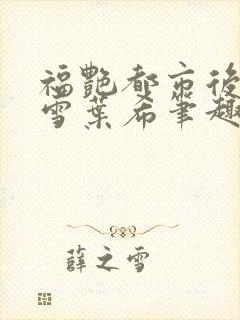 福艷都市後
雪葉希筆趣
薛之雪